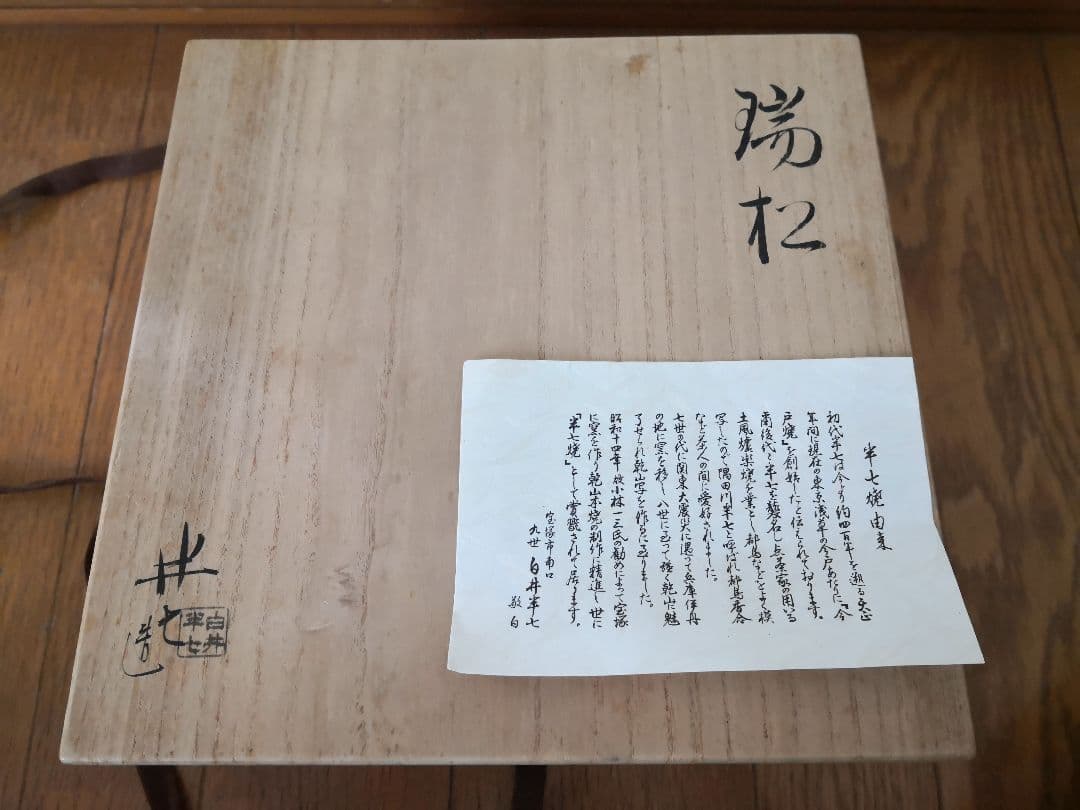 瑞松
半七造
白井
半七
半七焼由来
初代半七は今より約四百年を遡る天正
年間に現在の東京浅草の今戸あたりに『今
戸焼』を創始したと伝えられて おります。
爾後代々半七を襲名し 点茶家の用いる
土風爐楽焼を業とし都鳥などをよく模
写したので隅田川半七と呼ばれ都鳥香合
など茶人の間に愛好されました。
七世の代に関東大震災に遇って兵庫伊丹
の地に窯を移し 八世に至って強く乾山に魅
了せられ乾山写を作るに至りました。
昭和十四年故小林一三氏の勧めによって宝塚
に窯を作り乾山本焼の制作に精進し世に
『半七焼』として賞翫されて居ります。
宝塚市南口
九世 白井半七
敬白